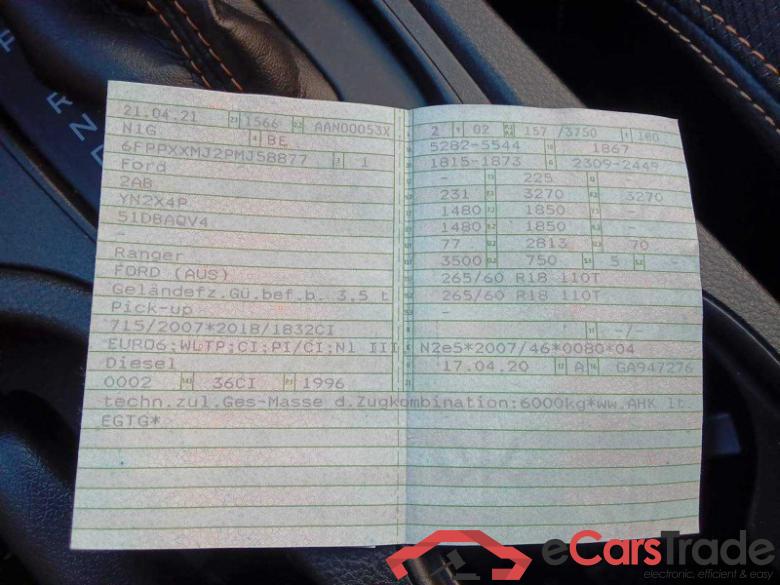 21.04.21 1566 AAN00053X
N1G BE
6FPPXXMJ2PMJ58877 1
Ford
2AB
YN2X4P
51DBAQV4
-
Ranger
FORD (AUS)
Geländefz.Gü.bef.b. 3,5 t
Pick-up
715/2007*2018/1832CI
EURO6;WLTP;CI;PI/CI;N1 III
Diesel
0002 36CI 1996
2 02 157 /3750 180
5282-5544 1867
1815-1873 2309-2449
- 225 -
231 3270 3270
1480 1850 -
1480 1850 -
77 2813 70
3500 750 5 -
265/60 R18 110T
265/60 R18 110T
-
-/-
N2e5*2007/46*0080*04
17.04.20 A GA947276
techn.zul.Ges-Masse d.Zugkombination:6000kg*ww.AHK lt.
EGTG*
eCarsTrade
electronic, efficient & easy
R
N